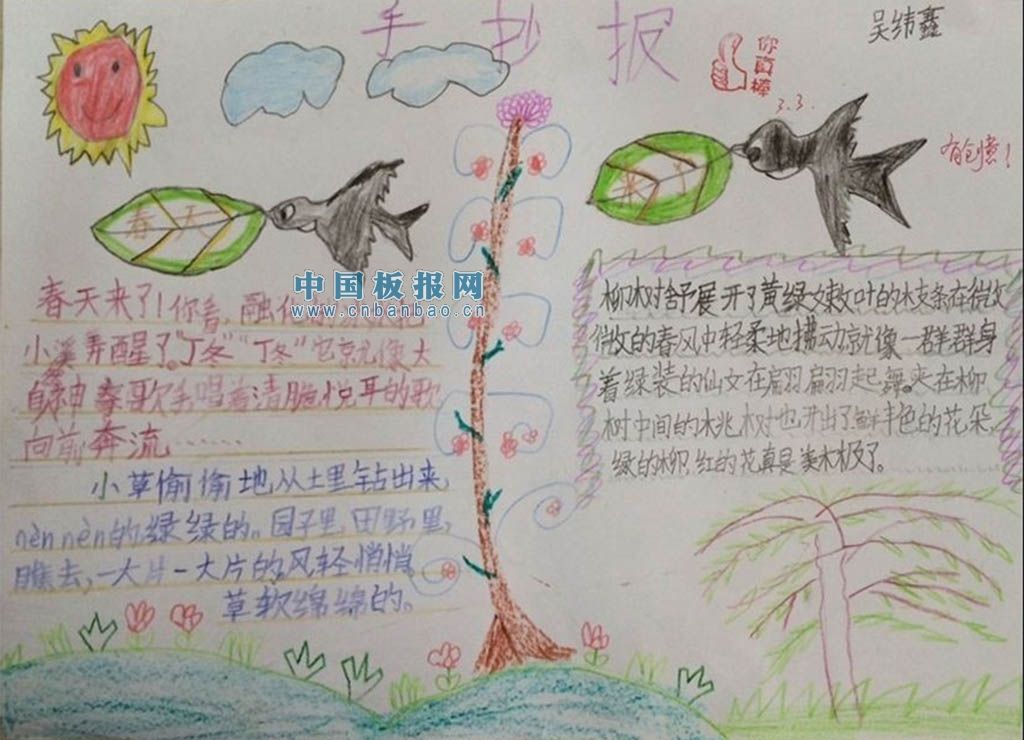 手抄报
吴纬鑫
你真棒
3.3.
有创意！
春天
来了
中国板报网
www.cnbanbao.cn
春天来了！你看，融化
小溪弄醒了。"丁冬""丁冬"它就像大
自然神奏歌手唱着清脆悦耳的歌
向前奔流……
小草偷偷地从土里钻出来，
nèn nèn的绿绿的。园子里，田野里，
瞧去，一大片一大片的，风轻悄悄，
草软绵绵的。
柳树舒展开了黄绿嫩叶的枝条在微
微的春风中轻柔地拂动就像一群群身
着绿装的仙女在扁羽扁羽起舞。夹在柳
树中间的桃树也开出了鲜丰色的花朵，
绿的柳，红的花真是美木极了。